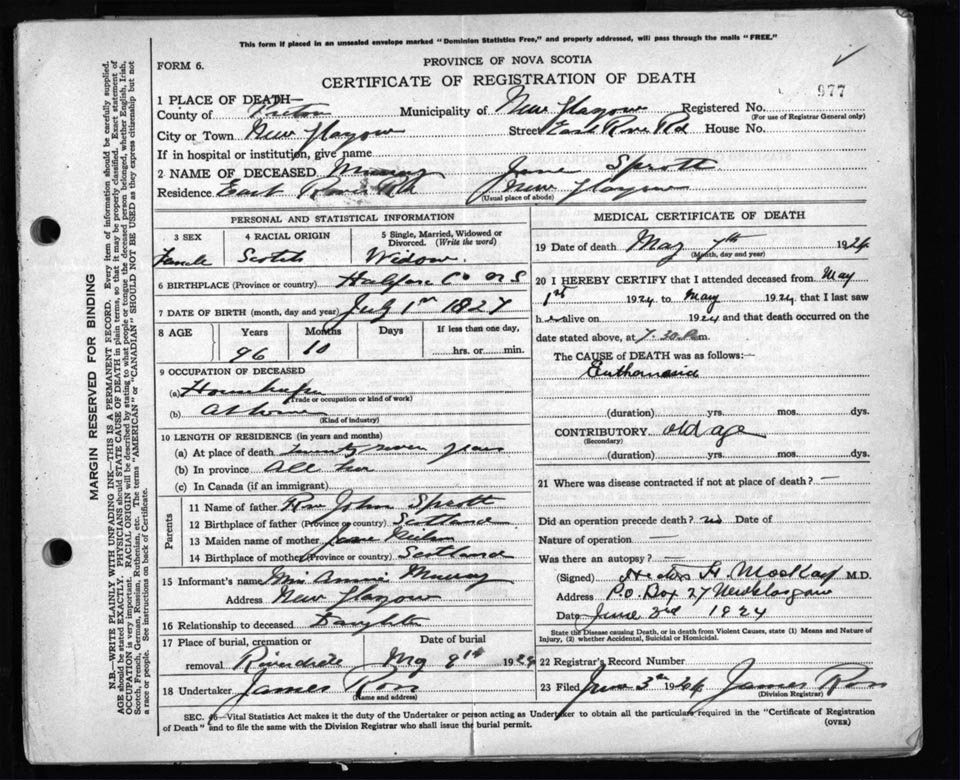 This form if placed in an unsealed envelope marked "Dominion Statistics Free," and properly addressed, will pass through the mails "FREE."
PROVINCE OF NOVA SCOTIA
FORM 6.
CERTIFICATE OF REGISTRATION OF DEATH
977
1 PLACE OF DEATH—
County of Pictou Municipality of New Glasgow Registered No.
(For use of Registrar General only)
City or Town New Glasgow Street East River Rd House No.
If in hospital or institution, give name
2 NAME OF DECEASED Murray Jane Sprott
Residence East River Rd New Glasgow
(Usual place of abode)
PERSONAL AND STATISTICAL INFORMATION
3 SEX 4 RACIAL ORIGIN 5 Single, Married, Widowed or Divorced. (Write the word)
Female Scotch Widow.
6 BIRTHPLACE (Province or country) Halifax Co N S
7 DATE OF BIRTH (month, day and year) July 1st 1827
8 AGE Years Months Days If less than one day,
96 10 hrs. or min.
9 OCCUPATION OF DECEASED
(a) Housekeeper
(Trade or occupation or kind of work)
(b) At home
(Kind of industry)
10 LENGTH OF RESIDENCE (in years and months)
(a) At place of death years
(b) In province All
(c) In Canada (if an immigrant)
Parents
11 Name of father Rev John Sprott
12 Birthplace of father (Province or country) Scotland
13 Maiden name of mother Jane
14 Birthplace of mother (Province or country) Scotland
15 Informant's name Mrs Annie Murray
Address New Glasgow
16 Relationship to deceased Daughter
17 Place of burial, cremation or removal Date of burial
Riverside May 9th 1924
18 Undertaker James Ross
(Name and address)
MEDICAL CERTIFICATE OF DEATH
19 Date of death May 7th 1924
(Month, day and year)
20 I HEREBY CERTIFY that I attended deceased from May
1st 1924 to May 1924 that I last saw
h alive on 1924 and that death occurred on the
date stated above, at 7.30 P.m.
The CAUSE OF DEATH was as follows:—
Euthanasia
(duration) yrs. mos. dys.
CONTRIBUTORY old age
(Secondary)
(duration) yrs. mos. dys.
21 Where was disease contracted if not at place of death? —
Did an operation precede death? no Date of
Nature of operation —
Was there an autopsy? —
(Signed) H. MacKay M.D.
Address P.O. Box 27 New Glasgow
Date June 3rd 1924
State the Disease causing Death, or in death from Violent Causes, state (1) Means and Nature of Injury, (2) whether Accidental, Suicidal or Homicidal.
22 Registrar's Record Number
23 Filed June 3rd 1924 James Ross
(Division Registrar)
SEC. —Vital Statistics Act makes it the duty of the Undertaker or person acting as Undertaker to obtain all the particulars required in the "Certificate of Registration
of Death" and to file the same with the Division Registrar who shall issue the burial permit. (OVER)
MARGIN RESERVED FOR BINDING
N.B.—WRITE PLAINLY WITH UNFADING INK—THIS IS A PERMANENT RECORD. Every item of information should be carefully supplied.
AGE should be stated EXACTLY. PHYSICIANS should STATE CAUSE OF DEATH in plain terms, so that it may be properly classified. Exact statement of
OCCUPATION is very important. RACIAL ORIGIN will be described by stating to what people or tongue the deceased person belonged, whether English, Irish,
Scotch, French, German, Russian, Ruthenian, etc. The terms "AMERICAN" or "CANADIAN" SHOULD NOT BE USED as they express citizenship but not
a race or people. See instructions on back of Certificate.